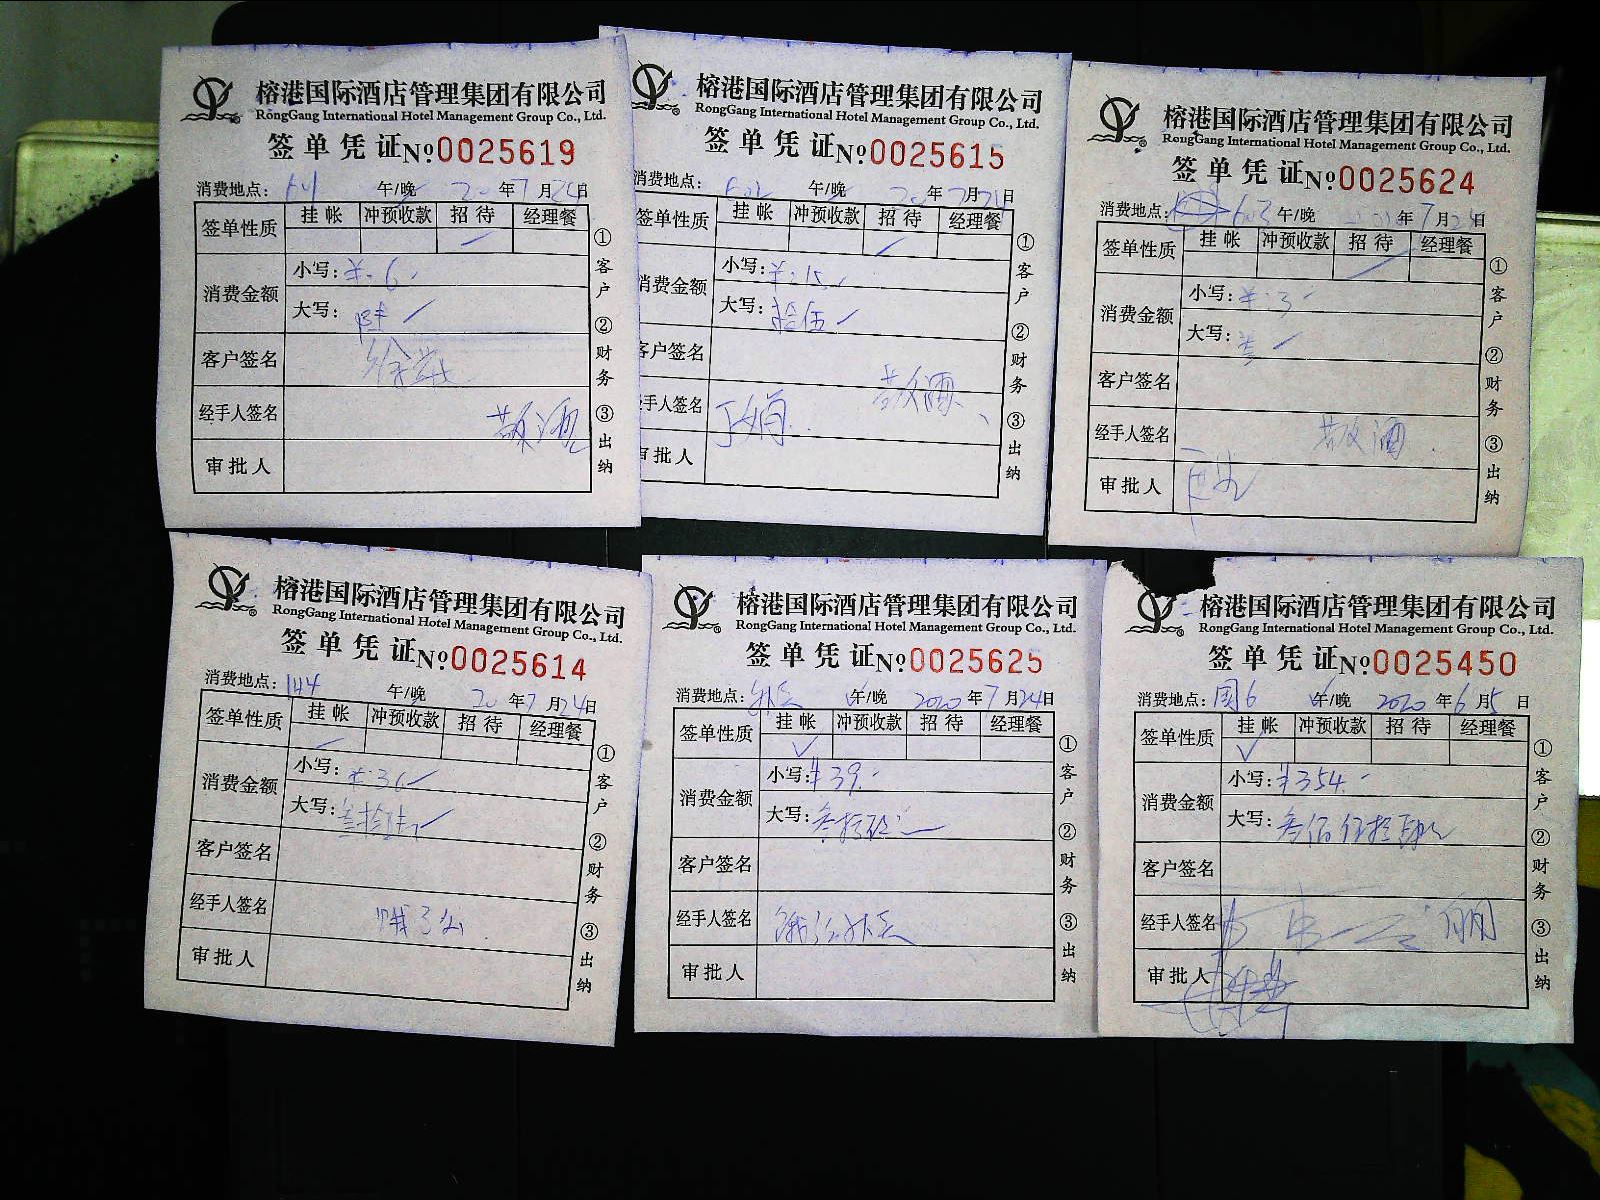 榕港国际酒店管理集团有限公司
RongGang International Hotel Management Group Co., Ltd.
签单凭证 №0025619
消费地点： 午/晚 20 年 7 月 24 日
签单性质 挂帐 冲预收款 招待 经理餐
消费金额 小写：¥.6.
大写：陆
客户签名
经手人签名 敬酒
审批人
①客户 ②财务 ③出纳
榕港国际酒店管理集团有限公司
RongGang International Hotel Management Group Co., Ltd.
签单凭证 №0025615
消费地点： 午/晚 20 年 7 月 日
签单性质 挂帐 冲预收款 招待 经理餐
消费金额 小写：¥.15.
大写：拾伍
客户签名
经手人签名 敬酒
审批人
①客户 ②财务 ③出纳
榕港国际酒店管理集团有限公司
RongGang International Hotel Management Group Co., Ltd.
签单凭证 №0025624
消费地点： 603 午/晚 年 7 月 日
签单性质 挂帐 冲预收款 招待 经理餐
消费金额 小写：¥.3
大写：叁
客户签名
经手人签名 敬酒
审批人
①客户 ②财务 ③出纳
榕港国际酒店管理集团有限公司
RongGang International Hotel Management Group Co., Ltd.
签单凭证 №0025614
消费地点：144 午/晚 20 年 7 月 24 日
签单性质 挂帐 冲预收款 招待 经理餐
消费金额 小写：¥.36
大写：叁拾陆
客户签名
经手人签名
审批人
①客户 ②财务 ③出纳
榕港国际酒店管理集团有限公司
RongGang International Hotel Management Group Co., Ltd.
签单凭证 №0025625
消费地点：外卖 午/晚 2020 年 7 月 24 日
签单性质 挂帐 ✓ 冲预收款 招待 经理餐
消费金额 小写：¥39.-
大写：叁拾玖元
客户签名
经手人签名
审批人
①客户 ②财务 ③出纳
榕港国际酒店管理集团有限公司
RongGang International Hotel Management Group Co., Ltd.
签单凭证 №0025450
消费地点：国6 午/晚 2020 年 6 月 5 日
签单性质 挂帐 ✓ 冲预收款 招待 经理餐
消费金额 小写：¥354.-
大写：叁佰伍拾肆元
客户签名
经手人签名
审批人
①客户 ②财务 ③出纳